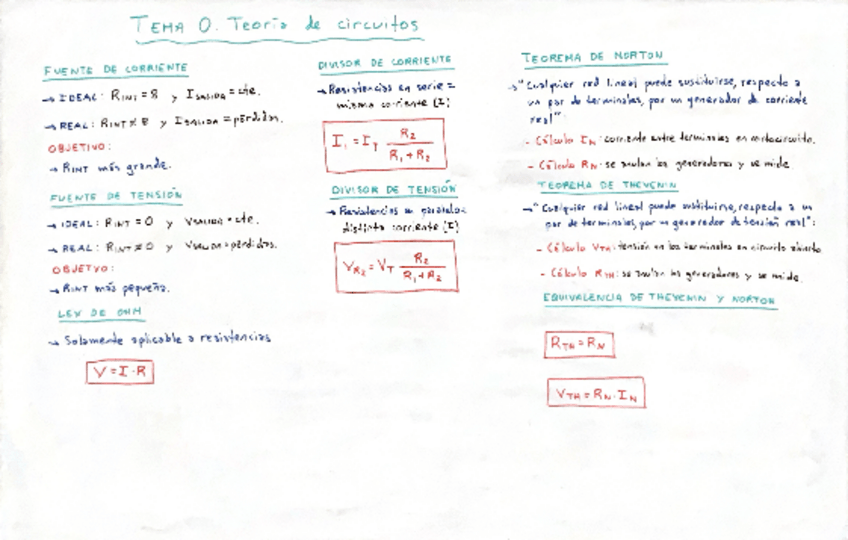 TEMA 0. Teoría de circuitos
FUENTE DE CORRIENTE
→ IDEAL: RINT = 8 y ISALIDA = cte.
→ REAL: RINT ≠ 8 y ISALIDA = pérdidas.
OBJETIVO:
→ RINT más grande.
FUENTE DE TENSIÓN
→ IDEAL: RINT = 0 y VSALIDA = cte.
→ REAL: RINT ≠ 0 y VSALIDA = pérdidas.
OBJETVO:
→ RINT más pequeña.
LEY DE OHM
→ Solamente aplicable a resistencias
V = I · R
DIVISOR DE CORRIENTE
→ Resistencias en serie =
misma corriente (I)
I₁ = I_T R₂ / (R₁ + R₂)
DIVISOR DE TENSIÓN
→ Resistencias en paralelo =
distinta corriente (I)
V_R₂ = V_T R₂ / (R₁ + R₂)
TEOREMA DE NORTON
→ "Cualquier red lineal puede sustituirse, respecto a
un par de terminales, por un generador de corriente
real":
- Cálculo I_N: corriente entre terminales en cortocircuito.
- Cálculo R_N: se anulan los generadores y se mide.
TEOREMA DE THEVENIN
→ "Cualquier red lineal puede sustituirse, respecto a un
par de terminales, por un generador de tensión real":
- Cálculo V_TH: tensión en los terminales en circuito abierto.
- Cálculo R_TH: se anulan los generadores y se mide.
EQUIVALENCIA DE THEVENIN Y NORTON
R_TH = R_N
V_TH = R_N · I_N